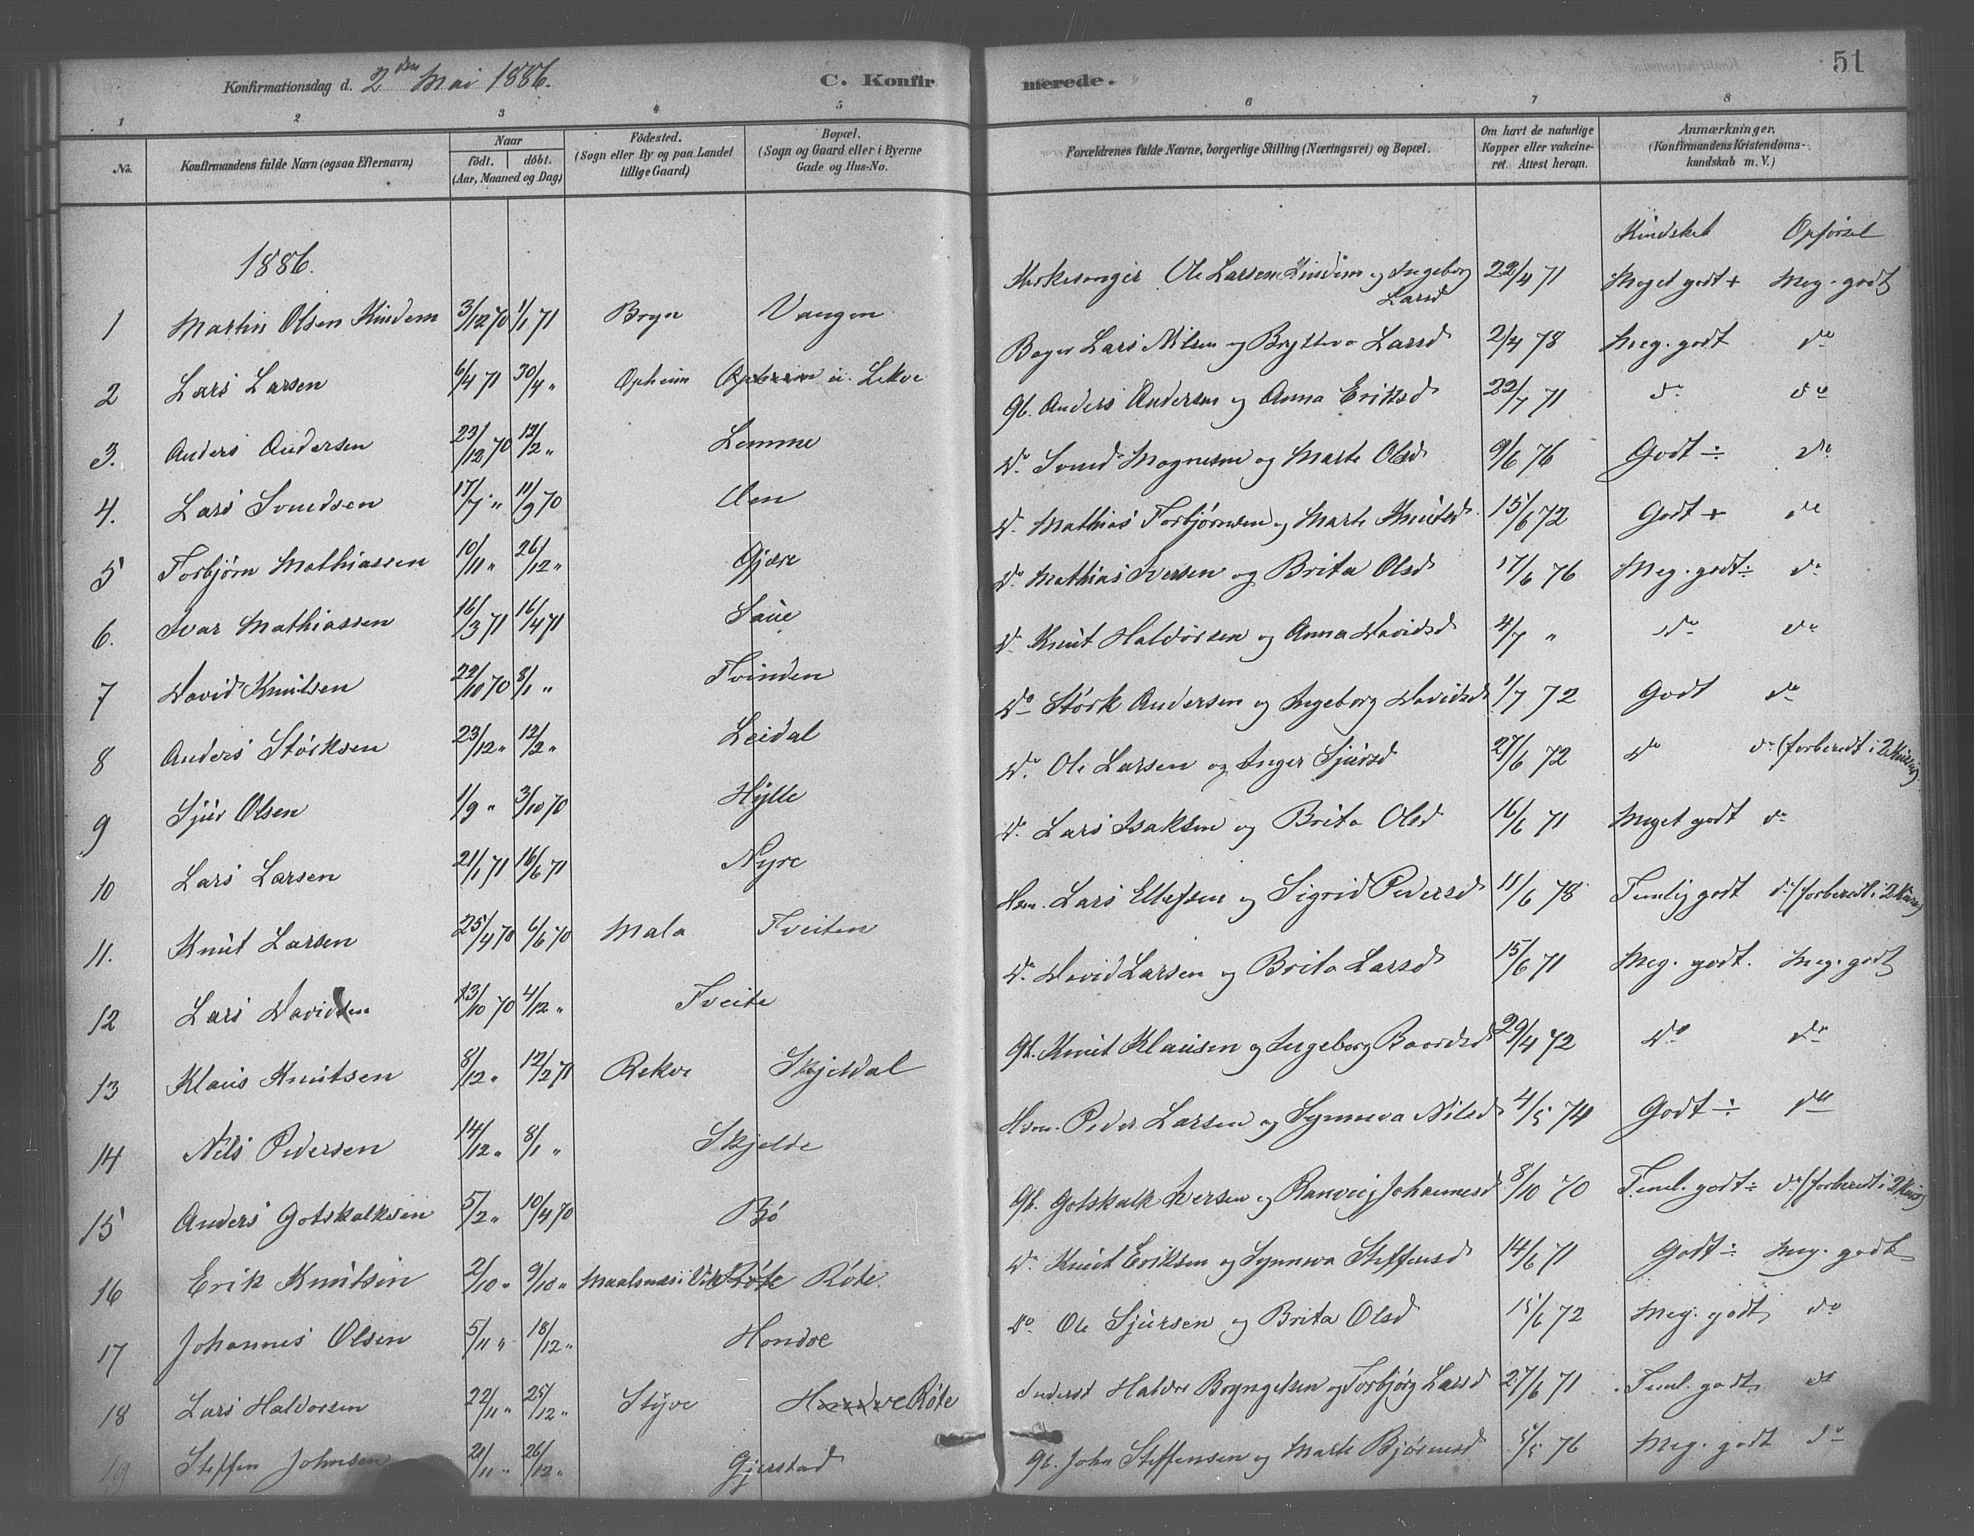 Konfirmationsdag d. 2den Mai 1886. C. Konfirmerede. 51
1 2 3 4 5 6 7 8
No. Konfirmandens fulde Navn (ogsaa Efternavn) Naar födt. döbt. (Aar, Maaned og Dag) Födested. (Sogn eller By og paa Landet tillige Gaard) Bopæl. (Sogn og Gaard eller i Byerne Gade og Hus-No. Forældrenes fulde Navne, borgerlige Stilling (Næringsvei) og Bopæl. Om havt de naturlige Kopper eller vakcineret. Attest herom. Anmærkninger. (Konfirmandens Kristendomskundskab m. V.)
1886. Kundskab Opførsel
1 Martin Olsen Kindem 3/12 70 1/1 71 Bryn Vangen Kirkesanger Ole Larsen Kindem og Ingeborg Larsd 22/4 71 Meget godt + Meg. godt
2 Lars Larsen 6/4 71 30/4 " Opheim Opheim u. Lekve Bager Lars Nilsen og Brytteva Larsd 2/4 78 Meg. godt do
3. Anders Andersen 23/12 70 12/2 " Lemme Gb. Anders Andersen og Anna Eriksd 22/7 71 do do
4. Lars Svendsen 17/7 " 11/9 70 Uen Do Svend Mognesen og Marte Olsd 9/6 76 Godt ÷ do
5 Torbjørn Mathiassen 10/11 " 26/12 " Gjære Do Mathias Torbjørnsen og Marte Knutsd 15/6 72 Godt + do
6. Ivar Mathiassen 16/3 71 16/4 71 Saue Do Mathias Iversen og Brita Olsd 17/6 76 Meg. godt ÷ do
7 David Knutsen 22/10 70 8/1 " Tvinden Do Knut Haldorsen og Anna Davidsd 4/7 " Do do
8 Anders Størksen 23/12 " 12/2 " Leidal Do Størk Andersen og Ingeborg Davidsd 1/7 72 Godt do
9 Sjur Olsen 1/9 " 3/10 70 Hylle Do Ole Larsen og Inger Sjursd 27/6 72 Do do (forberedt i 2
10 Lars Larsen 21/1 71 16/6 71 Nyre Do Lars Isaksen og Brita Olsd 16/6 71 Meget godt do
11. Knut Larsen 25/4 70 6/6 70 Mala Tveiten Hsm. Lars Ellefsen og Sigrid Pedersd 11/6 78 Temlig godt do (forberedt i 2
12 Lars Davidsen 13/10 70 4/12 " Tveite Do David Larsen og Brita Larsd 15/6 71 Meg. godt. Meg. godt
13 Klaus Knutsen 8/12 " 12/2 71 Rekve Skjeldal Gb. Knut Klausen og Ingeborg Baardsd 29/4 72 Do do
14 Nils Pedersen 14/12 " 8/1 " Skjelde Hsm. Peder Larsen og Synneva Nilsd 4/5 74 Godt ÷ do
15 Anders Gotskalksen 5/2 " 10/4 70 Bø Gb. Gotskalk Iversen og Ranveig Johannesd 8/10 70 Teml. godt ÷ do (forberedt i 2
16 Erik Knutsen 2/10 " 9/10 " Maalsnæs i Vik Røte Røte Do Knut Eriksen og Synneva Steffensd 14/6 71 Godt ÷ Meg. godt
17 Johannes Olsen 5/11 " 18/12 " Hondve Do Ole Sjursen og Brita Olsd 15/6 72 Meg. godt do
18 Lars Haldorsen 22/11 " 25/12 " Styve Hondve Røte Inderst Haldor Bryngelsen og Torbjørg Larsd 27/6 71 Teml. godt do
19 Steffen Johnsen 21/11 " 26/12 " Gjerstad Gb. John Steffensen og Marte Bjørnesd 5/5 76 Meg. godt do